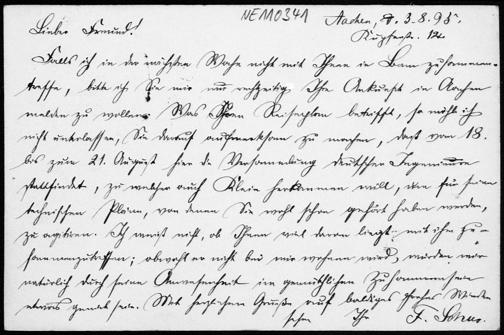 NE110341
Aachen, d. 3. 8. 95.
Kupferstr. 12.
Lieber Freund!
Falls ich in der nächsten Woche nicht mit Ihnen in Bonn zusammen-
treffe, bitte ich Sie mir nur rechtzeitig Ihre Ankunft in Aachen
melden zu wollen. Was Ihren Reiseplan betrifft, so möcht ich
nicht unterlassen, Sie darauf aufmerksam zu machen, dass vom 18.
bis zum 21. August hier die Versammlung deutscher Ingenieure
stattfindet, zu welcher auch Klein herkommen will, um für seine
technischen Pläne, von denen Sie wohl schon gehört haben werden,
zu agitiren. Ich weiss nicht, ob Ihnen viel daran liegt, mit ihm zu-
sammenzutreffen; obwohl er nicht bei mir wohnen wird, würden wir
natürlich durch seine Anwesenheit im gemüthlichen Zusammensein
etwas gestört sein. Mit herzlichem Gruße auf baldiges frohes Wieder-
sehen Ihr